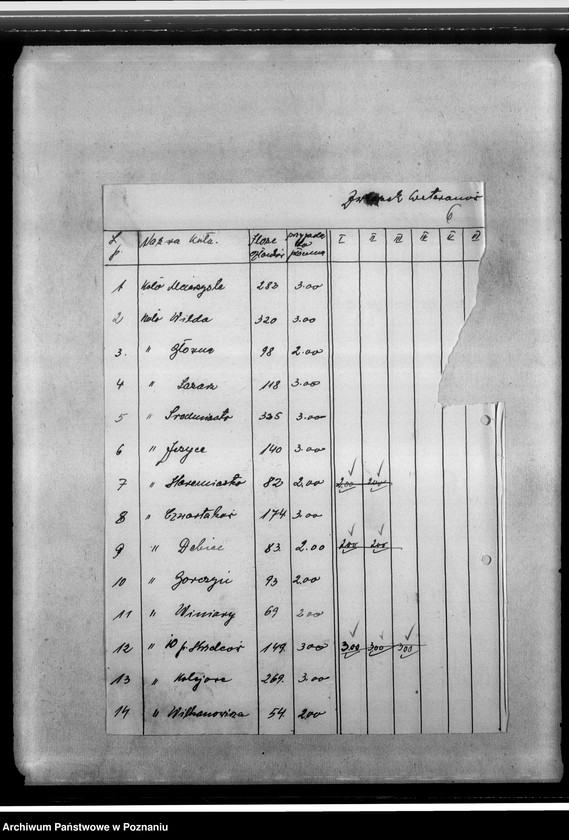 Weteranów
6
L. p. Nazwa Koła. Ilość członków przypada na pismo I II III IV V VI
1 Koło 283 3.00
2 Koło Wilda 320 3.00
3. " Główna 98 2.00
4 " Łazarz 118 3.00
5 " Śródmieście 335 3.00
6 " Jeżyce 140 3.00
7 " Staremiasto 82 2,00 2.00 2.00
8 " 174 3.00
9 " Dębiec 83. 2.00 200 200
10 " Gorczyn 93 2.00
11 " Winiary 69 2.00
12 " 10 p. 149. 300 3.00 300 300
13 " Kolejowe 269. 3.00
14 " 54. 200
Archiwum Państwowe w Poznaniu